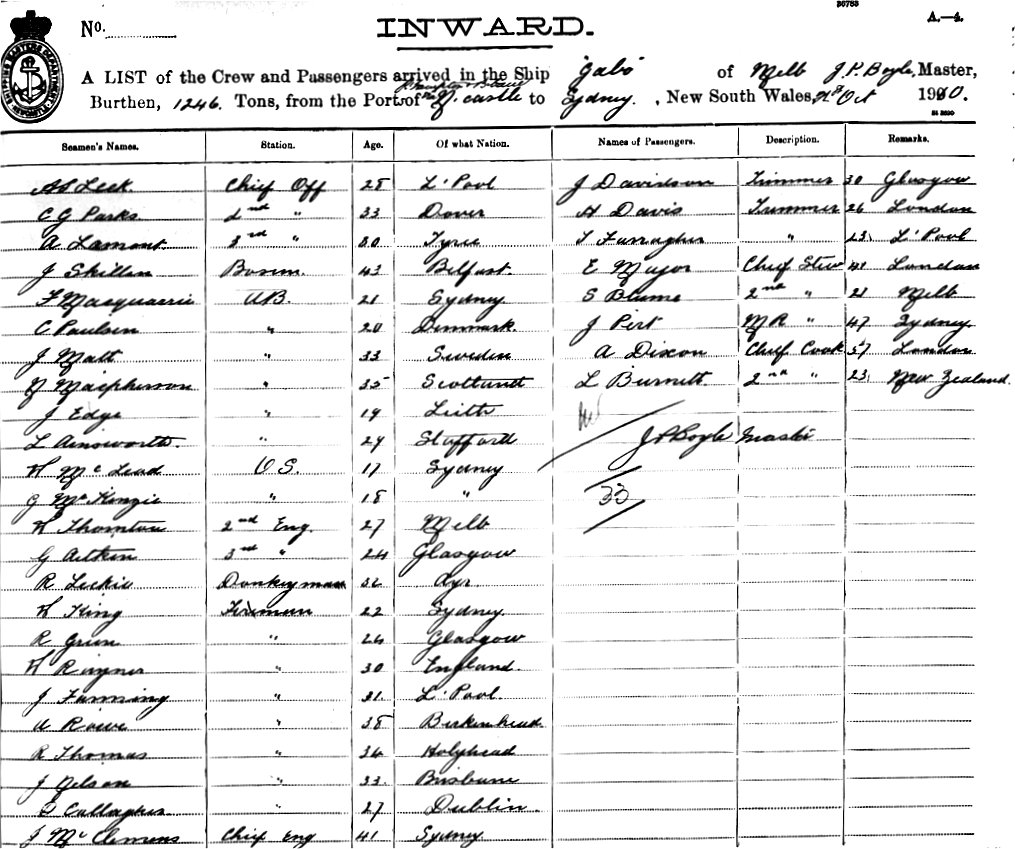 36783
A.—4.
No.
INWARD.
A LIST of the Crew and Passengers arrived in the Ship "Gabo" of Melb J. P. Boyle, Master,
Burthen, 1246. Tons, from the Port of N. castle to Sydney. , New South Wales, Oct 1900.
Seamen's Names. Station. Age. Of what Nation. Names of Passengers. Description. Remarks.
Leek Chief Off 28 L'Pool J Davidson Trimmer 30 Glasgow
C G Parks 2nd " 33 Dover H Davis Trimmer 26 London
A Lamont 3rd " 30 Tyree T Farragher " 23 L'Pool
J Skillen Bosun 43 Belfast E Major Chief Stew 41 London
F Macquarrie AB. 21 Sydney S Blume 2nd " 21 Melb
C Paulsen " 20 Denmark J Pert M R " 47 Sydney
J Matt " 33 Sweden A Dixon Chief Cook 57 London
Macpherson " 35 Scotland L Burnett 2nd " 23 New Zealand.
J Edge " 19 Leith
L Ainsworth " 29 Stafford J P Boyle Master
Mc Leod O S. 17 Sydney
G McKenzie " 18 " 33
Thornton 2nd Eng. 27 Melb
G Aitken 3rd " 24 Glasgow
R Leckie Donkeyman 32 Ayr
King Fireman 22 Sydney
R Green " 26 Glasgow
Rayner " 30 England
J Fanning " 31 L'Pool
A Rowe " 38 Birkenhead
R Thomas " 34 Holyhead
J Gelson " 33 Brisbane
Callagher " 27 Dublin
J Mc Clemens Chief Eng 41 Sydney